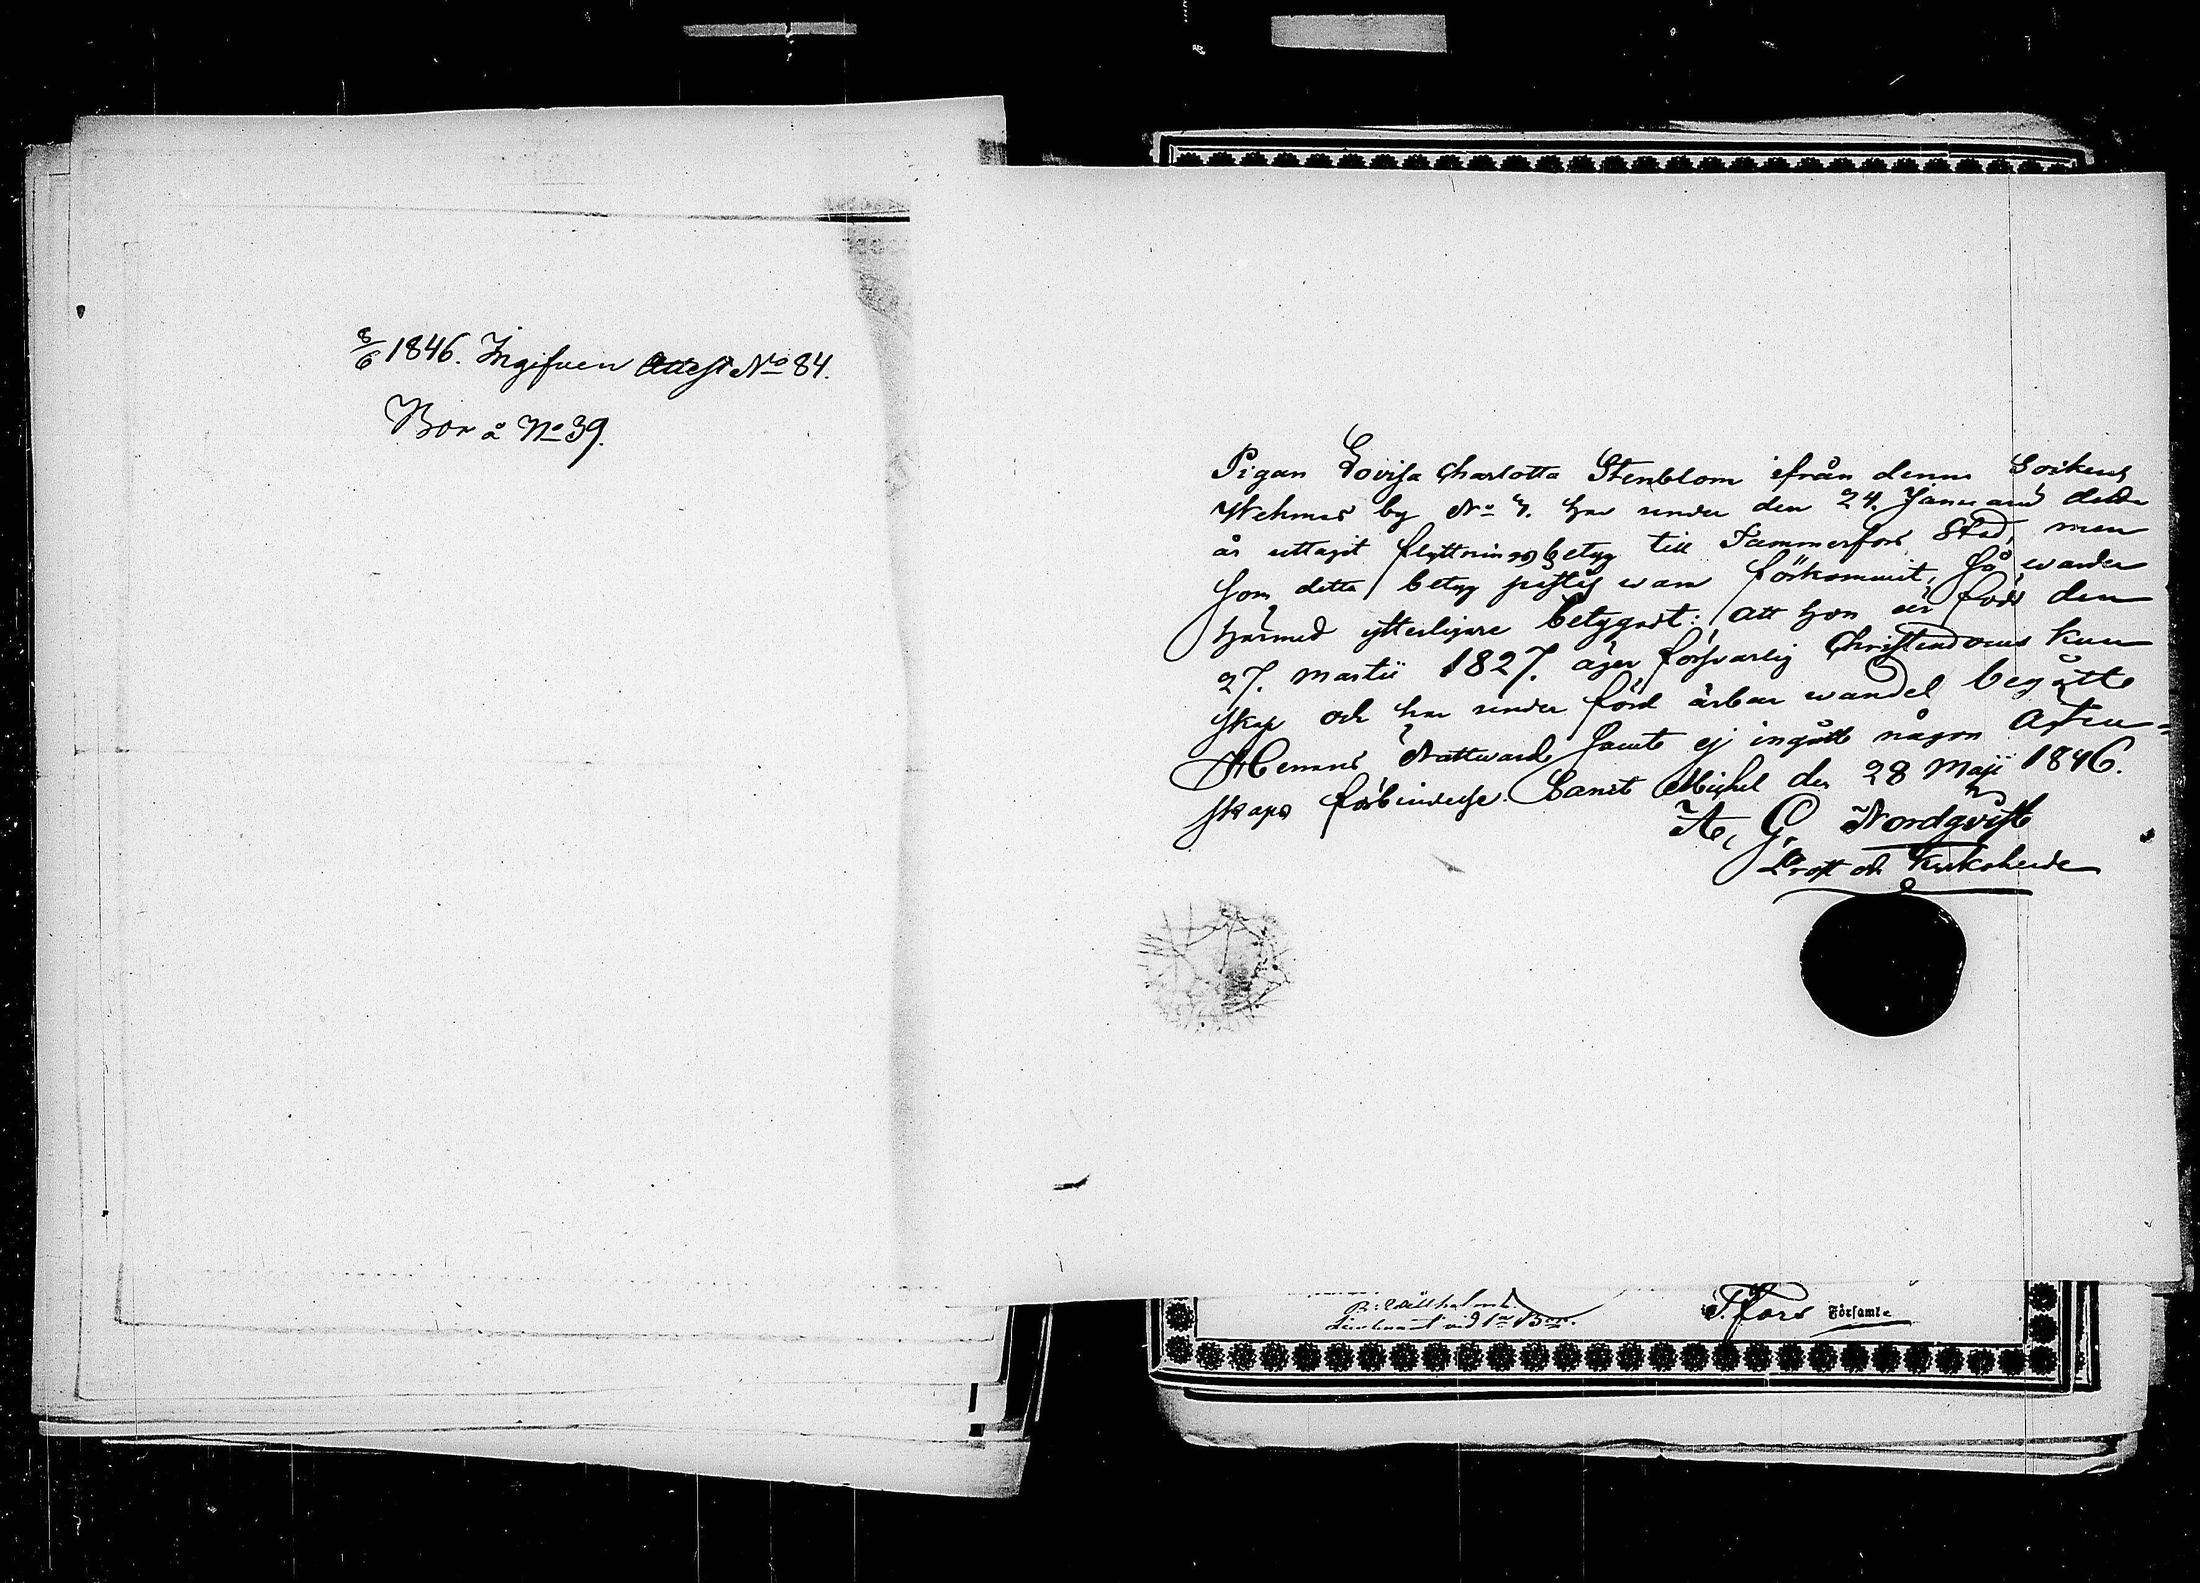 8/6 1846. Ingifven Attest No 84.
Bor å No 39.
Pigan Lovisa Charlotta Stenblom ifrån denna Sockens
Wehmas by No 7. har under den 24. Januarii detta
år uttagit flyttningsbetyg till Tammerfors Stad, men
som detta betyg war förkommit, så warder
härmed ytterligare betygadt: att hon är född den
27. Martii 1827. äger försvarlig Christendoms kun
skap och har under förd ärbar wandel begått
HErrans Nattward samt ej ingått någon Ägten-
skaps förbindelse. Sanct Michel den 28 Maji 1846.
A. G. Nordqvist
Prost och Kyrkoherde
T.fors Församl.